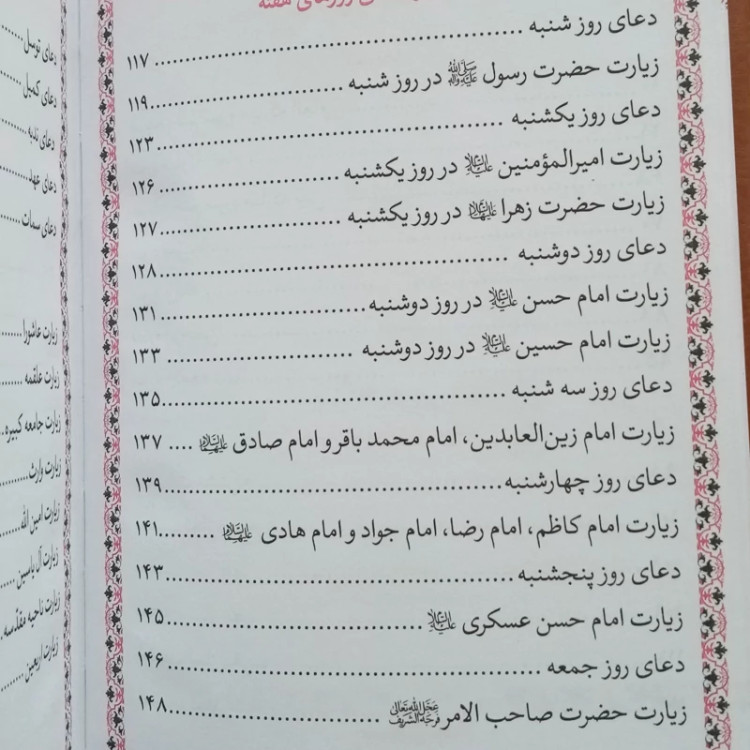 روزهای هفته
دعای روز شنبه ................................ ۱۱۷
زیارت حضرت رسول ﷺ در روز شنبه ................................ ۱۱۹
دعای روز یکشنبه ................................ ۱۲۳
زیارت امیرالمؤمنین علیه‌السلام در روز یکشنبه ................................ ۱۲۶
زیارت حضرت زهرا علیهاالسلام در روز یکشنبه ................................ ۱۲۷
دعای روز دوشنبه ................................ ۱۲۸
زیارت امام حسن علیه‌السلام در روز دوشنبه ................................ ۱۳۱
زیارت امام حسین علیه‌السلام در روز دوشنبه ................................ ۱۳۳
دعای روز سه شنبه ................................ ۱۳۵
زیارت امام زین‌العابدین، امام محمد باقر و امام صادق علیهم‌السلام .... ۱۳۷
دعای روز چهارشنبه ................................ ۱۳۹
زیارت امام کاظم، امام رضا، امام جواد و امام هادی علیهم‌السلام ......... ۱۴۱
دعای روز پنجشنبه ................................ ۱۴۳
زیارت امام حسن عسکری علیه‌السلام ................................ ۱۴۵
دعای روز جمعه ................................ ۱۴۶
زیارت حضرت صاحب الامر عجل الله تعالی فرجه الشریف ................................ ۱۴۸
دعای توسل ........
دعای کمیل ........
دعای ندبه ........
دعای عهد ........
دعای سمات ........
زیارت عاشورا ........
زیارت علقمه ........
زیارت جامعه کبیره ..
زیارت وارث ........
زیارت امین الله ......
زیارت آل یاسین .....
زیارت ناحیه مقدّسه ..
زیارت اربعین ........